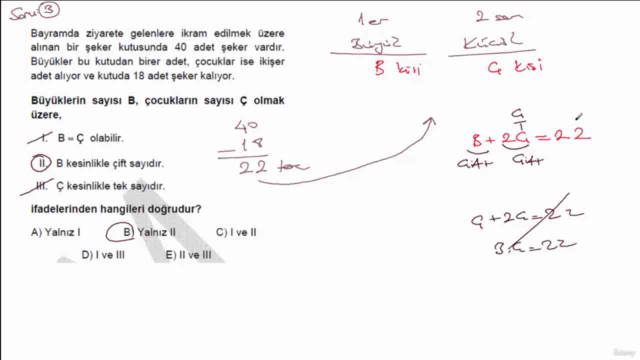 Soru 3
Bayramda ziyarete gelenlere ikram edilmek üzere
alınan bir şeker kutusunda 40 adet şeker vardır.
Büyükler bu kutudan birer adet, çocuklar ise ikişer
adet alıyor ve kutuda 18 adet şeker kalıyor.
Büyüklerin sayısı B, çocukların sayısı Ç olmak
üzere,
I. B = Ç olabilir.
II. B kesinlikle çift sayıdır.
III. Ç kesinlikle tek sayıdır.
ifadelerinden hangileri doğrudur?
A) Yalnız I B) Yalnız II C) I ve II
D) I ve III E) II ve III
40
- 18
22
1 er
Büyük
B kişi
2 şer
Küçük
Ç kişi
Ç
B + 2Ç = 22
Çift Çift
Ç + 2Ç = 22
3.Ç = 22